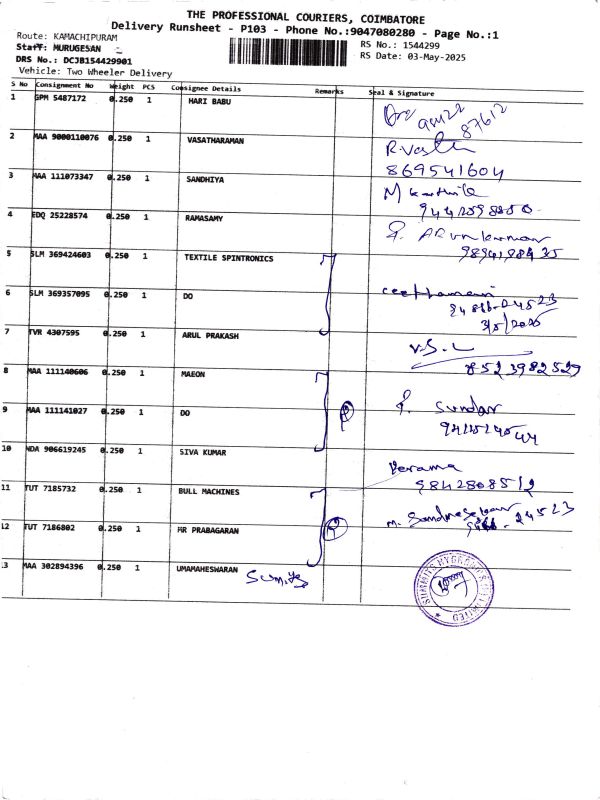 THE PROFESSIONAL COURIERS, COIMBATORE
Delivery Runsheet - P103 - Phone No.:9047080280 - Page No.:1
Route: KAMACHIPURAM
Staff: MURUGESAN
RS No.: 1544299
DRS No.: DCJB154429901
RS Date: 03-May-2025
Vehicle: Two Wheeler Delivery
S No Consignment No Weight PCS Consignee Details Remarks Seal & Signature
1 GPM 5487172 0.250 1 HARI BABU
87612
2 MAA 9000110076 0.250 1 VASATHARAMAN
869541604
3 MAA 111073347 0.250 1 SANDHIYA
4 EDQ 25228574 0.250 1 RAMASAMY
5 SLM 369424603 0.250 1 TEXTILE SPINTRONICS
6 SLM 369357095 0.250 1 DO
3/5/2025
7 TVR 4307595 0.250 1 ARUL PRAKASH
V.S.L
8523982529
8 MAA 111140606 0.250 1 MAEON
9 MAA 111141027 0.250 1 DO
P. Sundar
10 NDA 906619245 0.250 1 SIVA KUMAR
9842808512
11 TUT 7185732 0.250 1 BULL MACHINES
12 TUT 7186802 0.250 1 MR PRABAGARAN
13 MAA 302894396 0.250 1 UMAMAHESWARAN